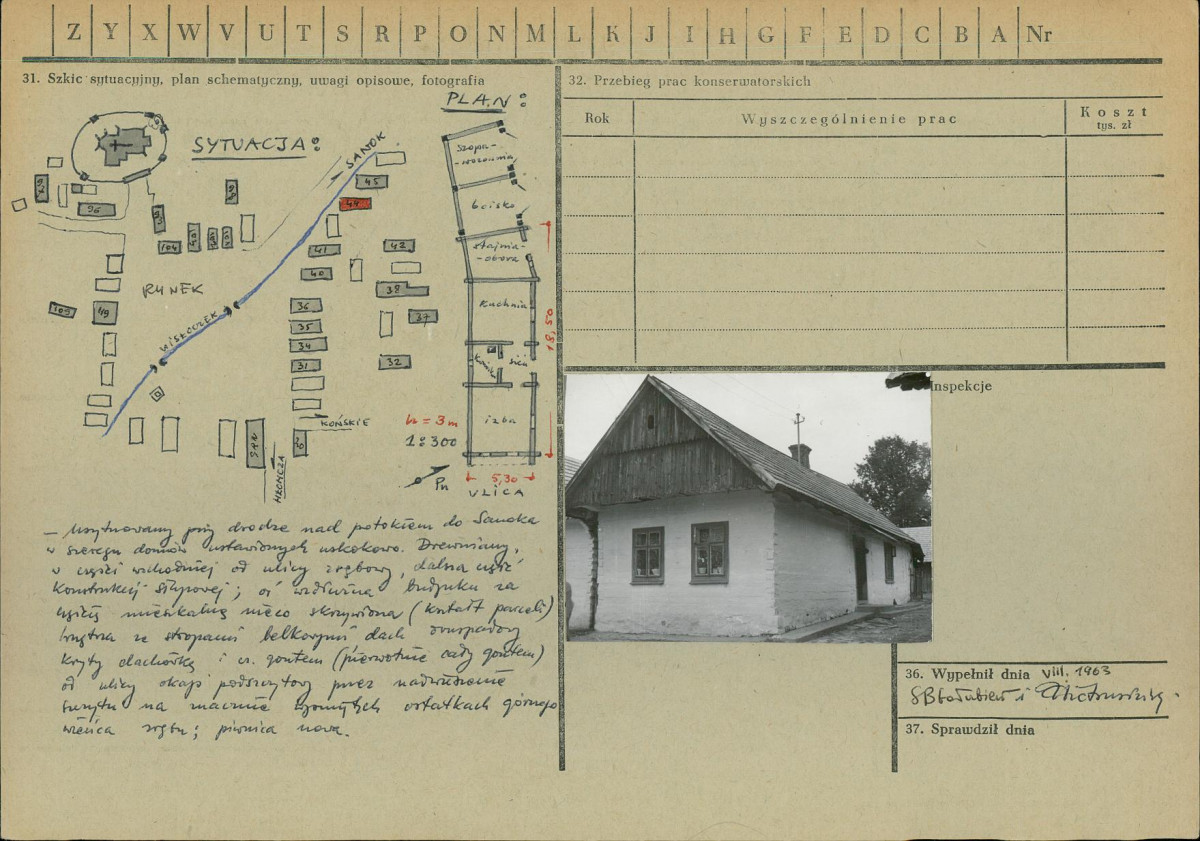 Z Y X W V U T S R P O N M L K J I H G F E D C B A Nr
31. Szkic sytuacyjny, plan schematyczny, uwagi opisowe, fotografia
SYTUACJA:
SANOK
45
44
96
104
41
42
40
RYNEK
38
37
109
49
36
35
34
31
32
WISŁOCZEK
KOŃSKIE
PLAN:
Szopa-
-wozownia
boisko
stajnia-
-obora
kuchnia
sień
izba
18,50
h = 3 m
1:300
5,30
Pn
ULICA
— Usytuowany przy drodze nad potokiem do Sanoka
w szeregu domów ustawionych uskokowo. Drewniany,
w części wschodniej od ulicy zrębowy, dalsza część
konstrukcji słupowej; oś wzdłużna budynku za
częścią mieszkalną nieco skrzywiona (kształt parceli)
Wnętrza ze stropami belkowymi dach dwuspadowy
kryty dachówką i cz. gontem (pierwotnie cały gontem)
od ulicy okap podszczytowy przez nadwieszenie
szczytu na macznie ostatkach górnego
wieńca zrębu; piwnica nowa.
32. Przebieg prac konserwatorskich
Rok
Wyszczególnienie prac
Koszt
tys. zł
Inspekcje
36. Wypełnił dnia VIII. 1963
37. Sprawdził dnia